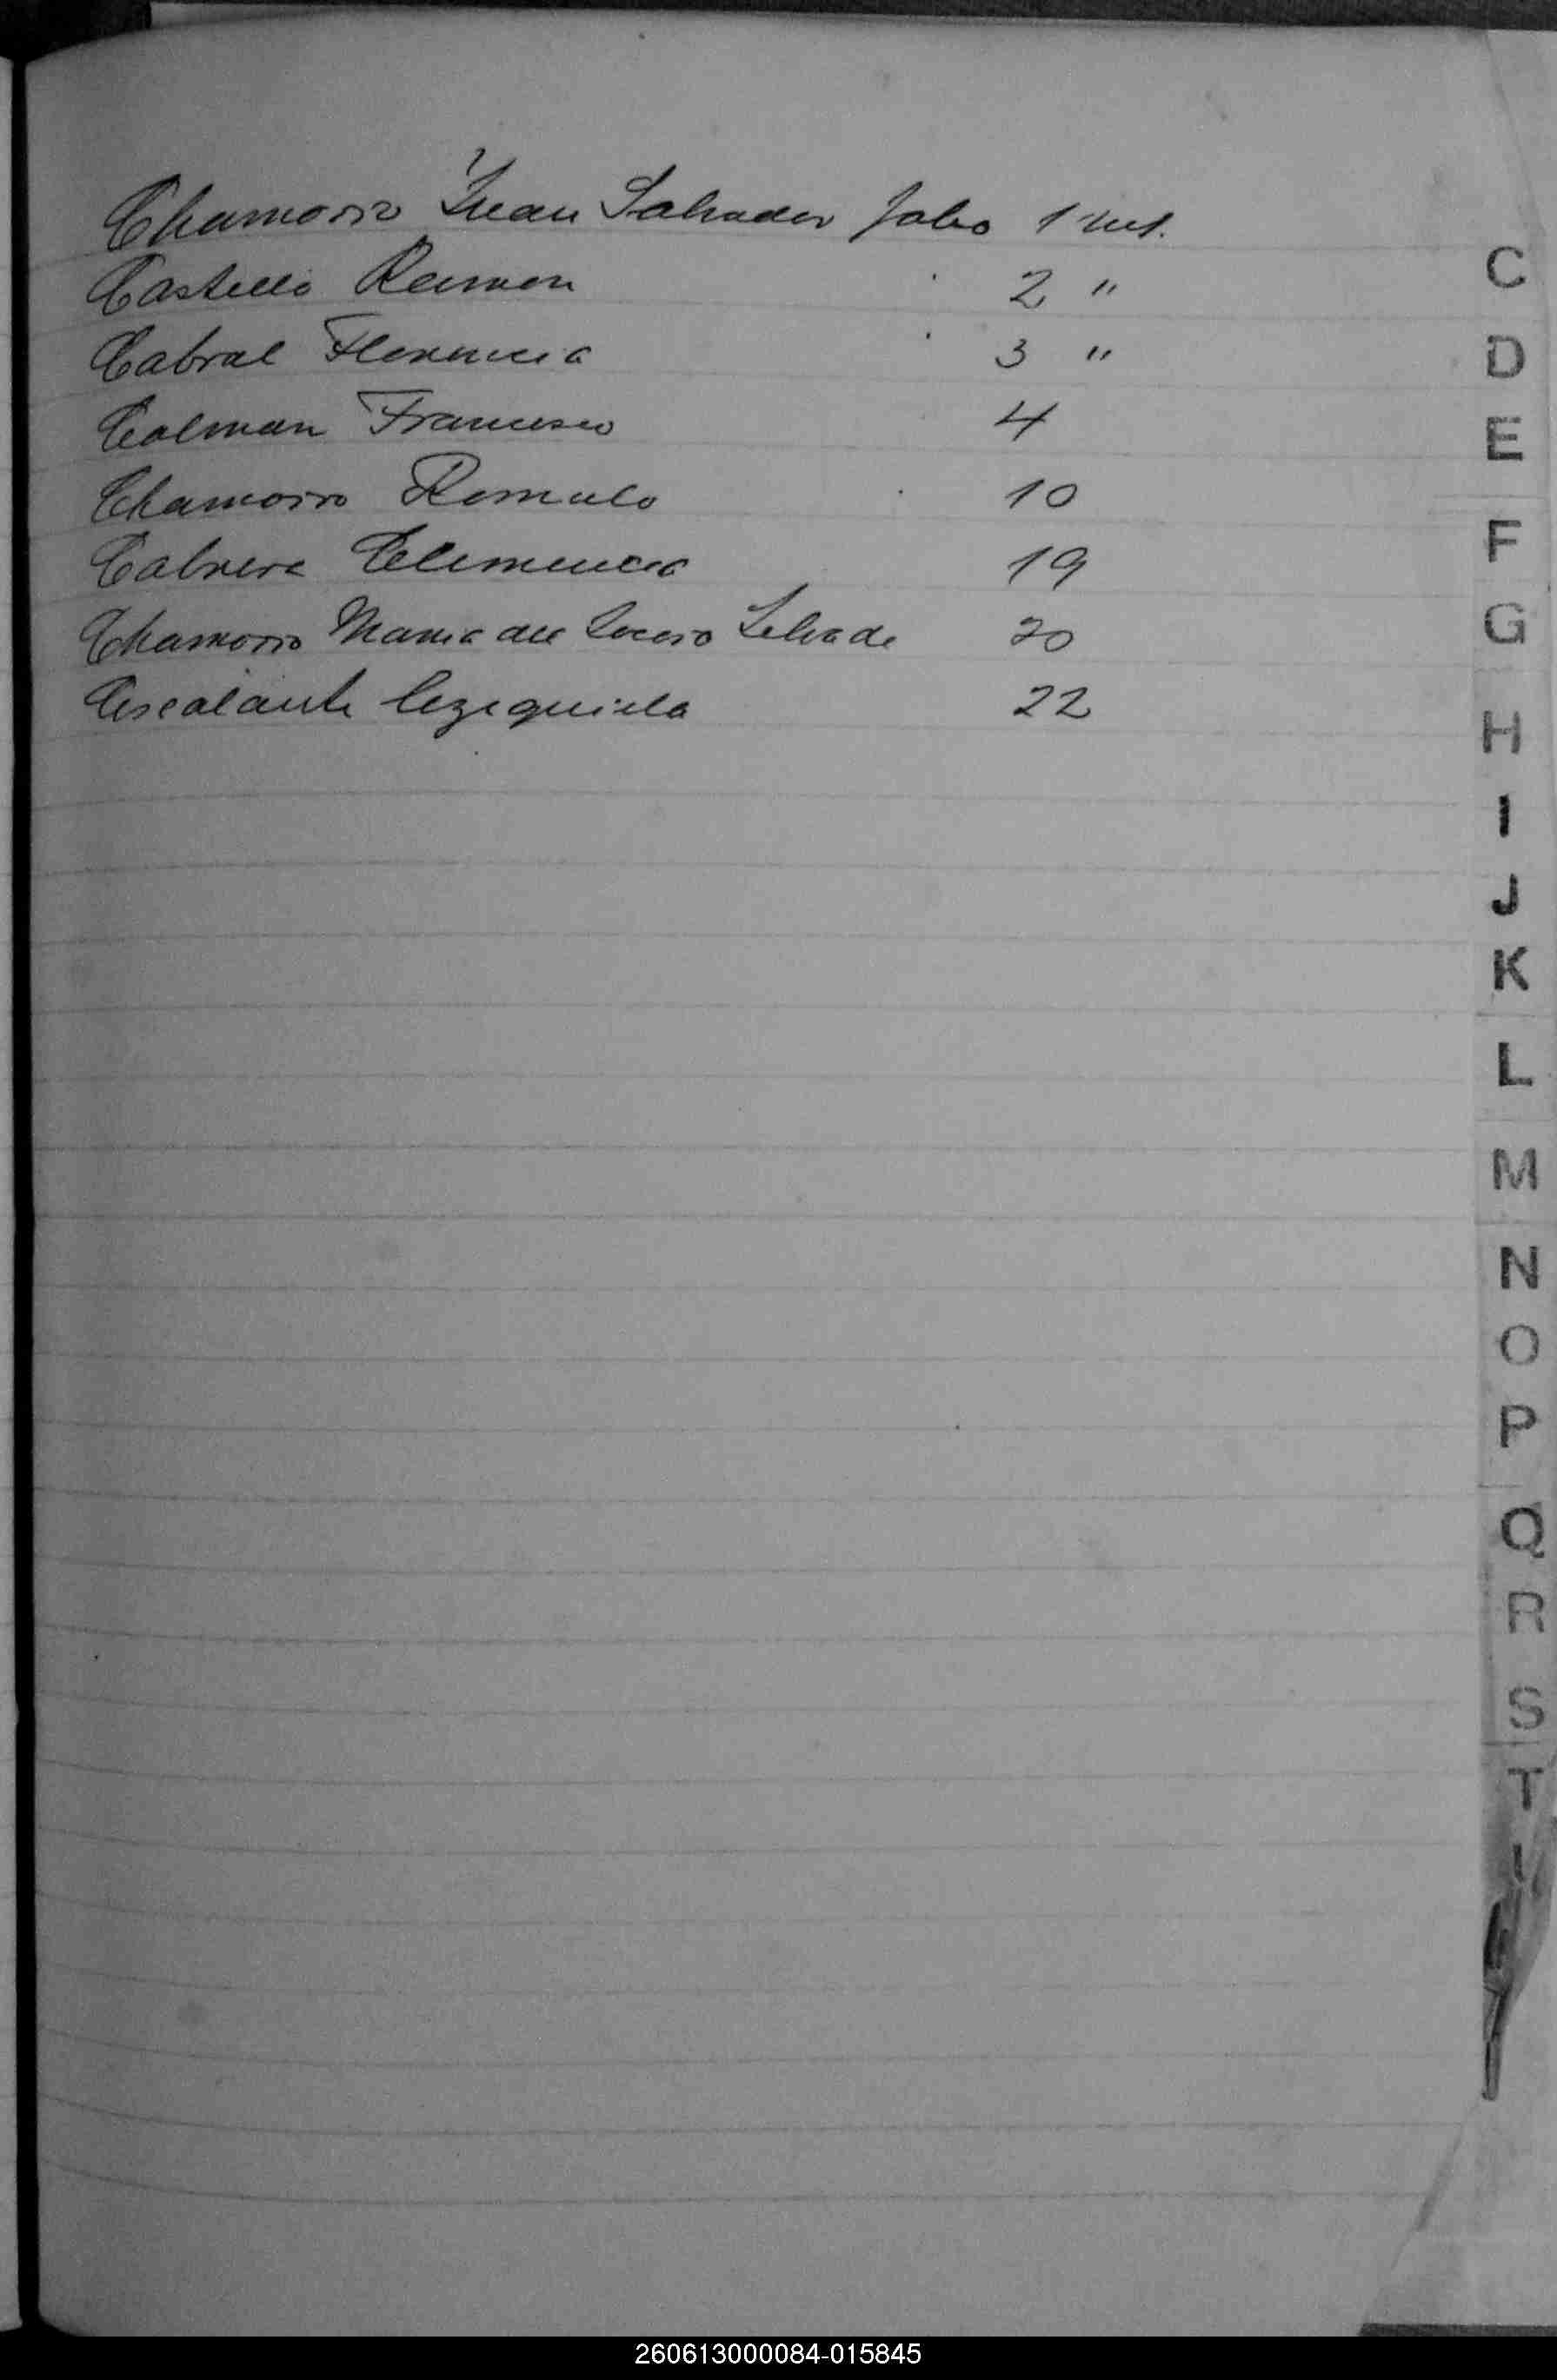 Chamorro Juan Salvador folio 1 vut.
Castello Ramon 2 "
Cabral Florencia 3 "
Colman Francisco 4
Chamorro Romulo 10
Cabrera Clemencia 19
Chamorro Maria del Socoro S. de 20
Escalante Ezequiela 22
C
D
E
F
G
H
I
J
K
L
M
N
O
P
Q
R
S
T
260613000084-015845